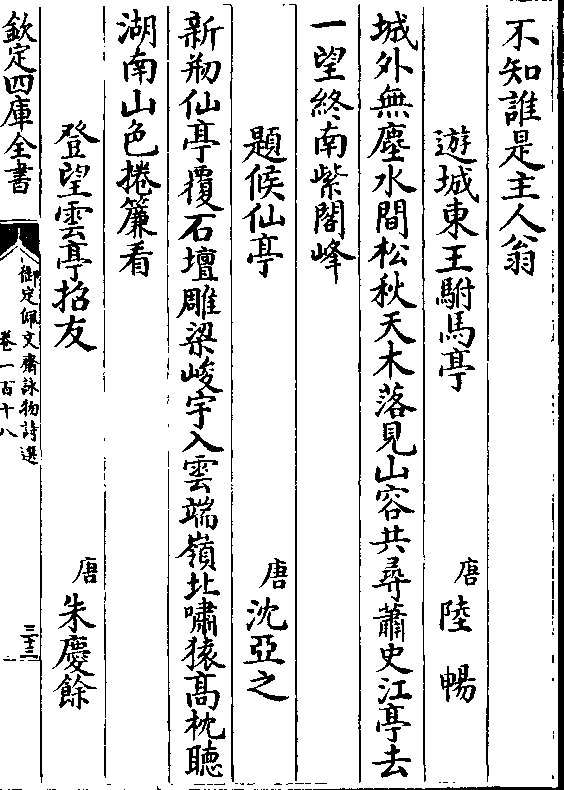 不知誰是主人翁
遊城東王駙馬亭 唐 陸暢
城外無塵水間松秋天木落見山容共尋蕭史江亭去
一望終南紫閣峰
題候仙亭 唐 沈亞之
新剏仙亭覆石壇雕梁峻宇入雲端嶺北嘯猿高枕聽
湖南山色捲簾看
登望雲亭招友 唐 朱慶餘
欽定四庫全書
御定佩文齋詠物詩選
卷一百十八